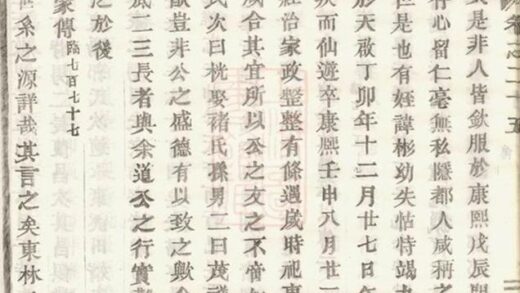 卷之二十五
是非人皆飲服於康熙戊辰
存心留仁毫無私隱都人咸柄之
但是也有姪諱彬幼失怙恃竭
於天啟丁卯年十二月廿七日
疾而仙遊卒康熙壬申八月廿
經治家政整整有條遇歲時祀
咸合其宜所以公之友之不
氏次曰桄娶褚氏孫男二曰茂
猷豈非公之盛德有以致之歟
二三長者與余道公之行實
之於後
家傳 臨七百七十七
世系之源詳哉其言之矣東林